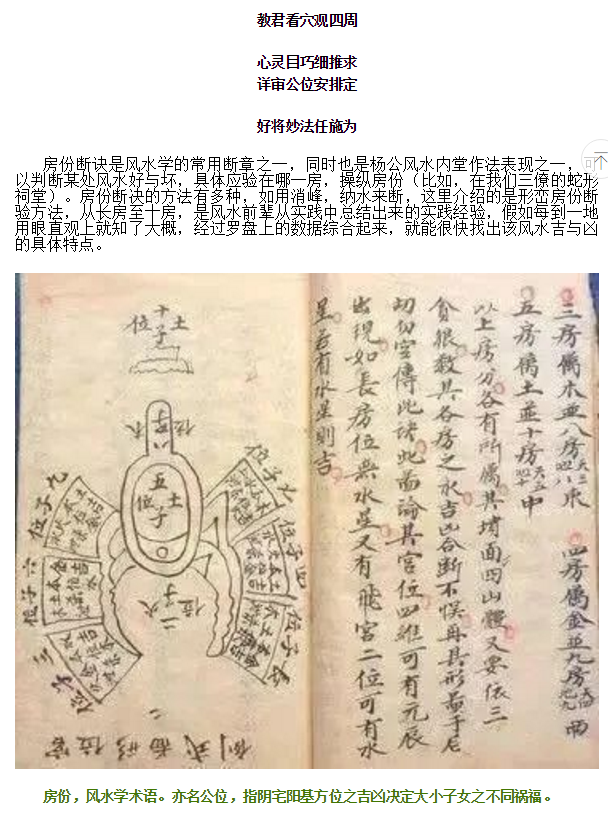 教君看穴观四周
心灵目巧细推求
详审公位安排定
好将妙法任施为
房份断诀是风水学的常用断章之一，同时也是杨公风水内堂作法表现之一，可
以判断某处风水好与坏，具体应验在哪一房，操纵房份（比如，在我们三僚的蛇形
祠堂）。房份断诀的方法有多种，如用消峰，纳水来断，这里介绍的是形峦房份断
验方法，从长房至十房，是风水前辈从实践中总结出来的实践经验，假如每到一地
用眼直观上就知了大概，经过罗盘上的数据综合起来，就能很快找出该风水吉与凶
的具体特点。
三房属木並八房
四房属金並九房
五房属土並十房
以上房分各有所属其堵面四山體又要依三
貪狠数其各房之水吉凶合断不悮再具形畐于后
切勿妄傳此诀此畐論其宫位四維可有元辰
出現如長房位無水星又有飛宫二位可有水
星若有水星則吉
十子土位
八子木位
五子土位
二子火位
九子位
六子位
三子位
七子位
四子位
長子位
倒式畐形位宫
房份，风水学术语。亦名公位，指阴宅阳基方位之吉凶决定大小子女之不同祸福。